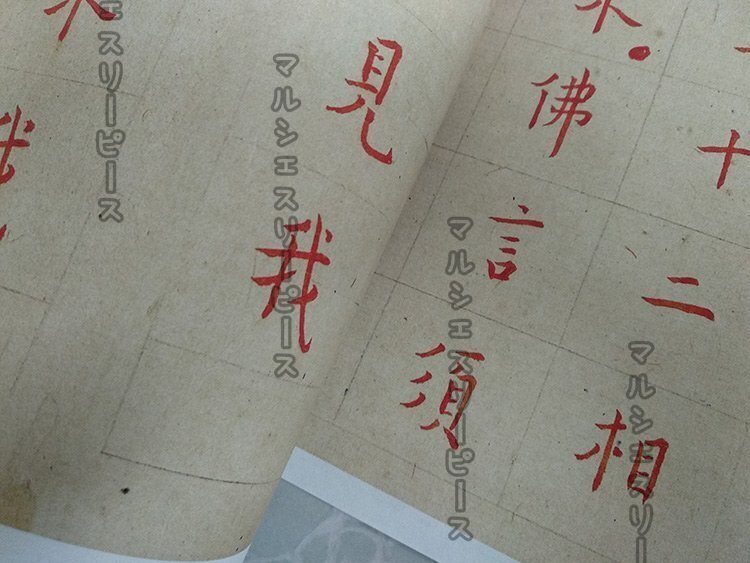 十二相
。佛言須
見我
我
ェスリーピース
マルシェスリーピース
マルシェスリーピース
マルシェスリー